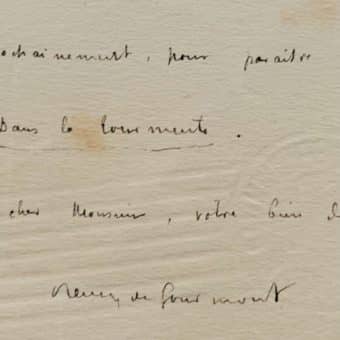 ochainement, pour paraître
Dans la Tourmente.
cher Monsieur, votre bien d
Remy de Gourmont